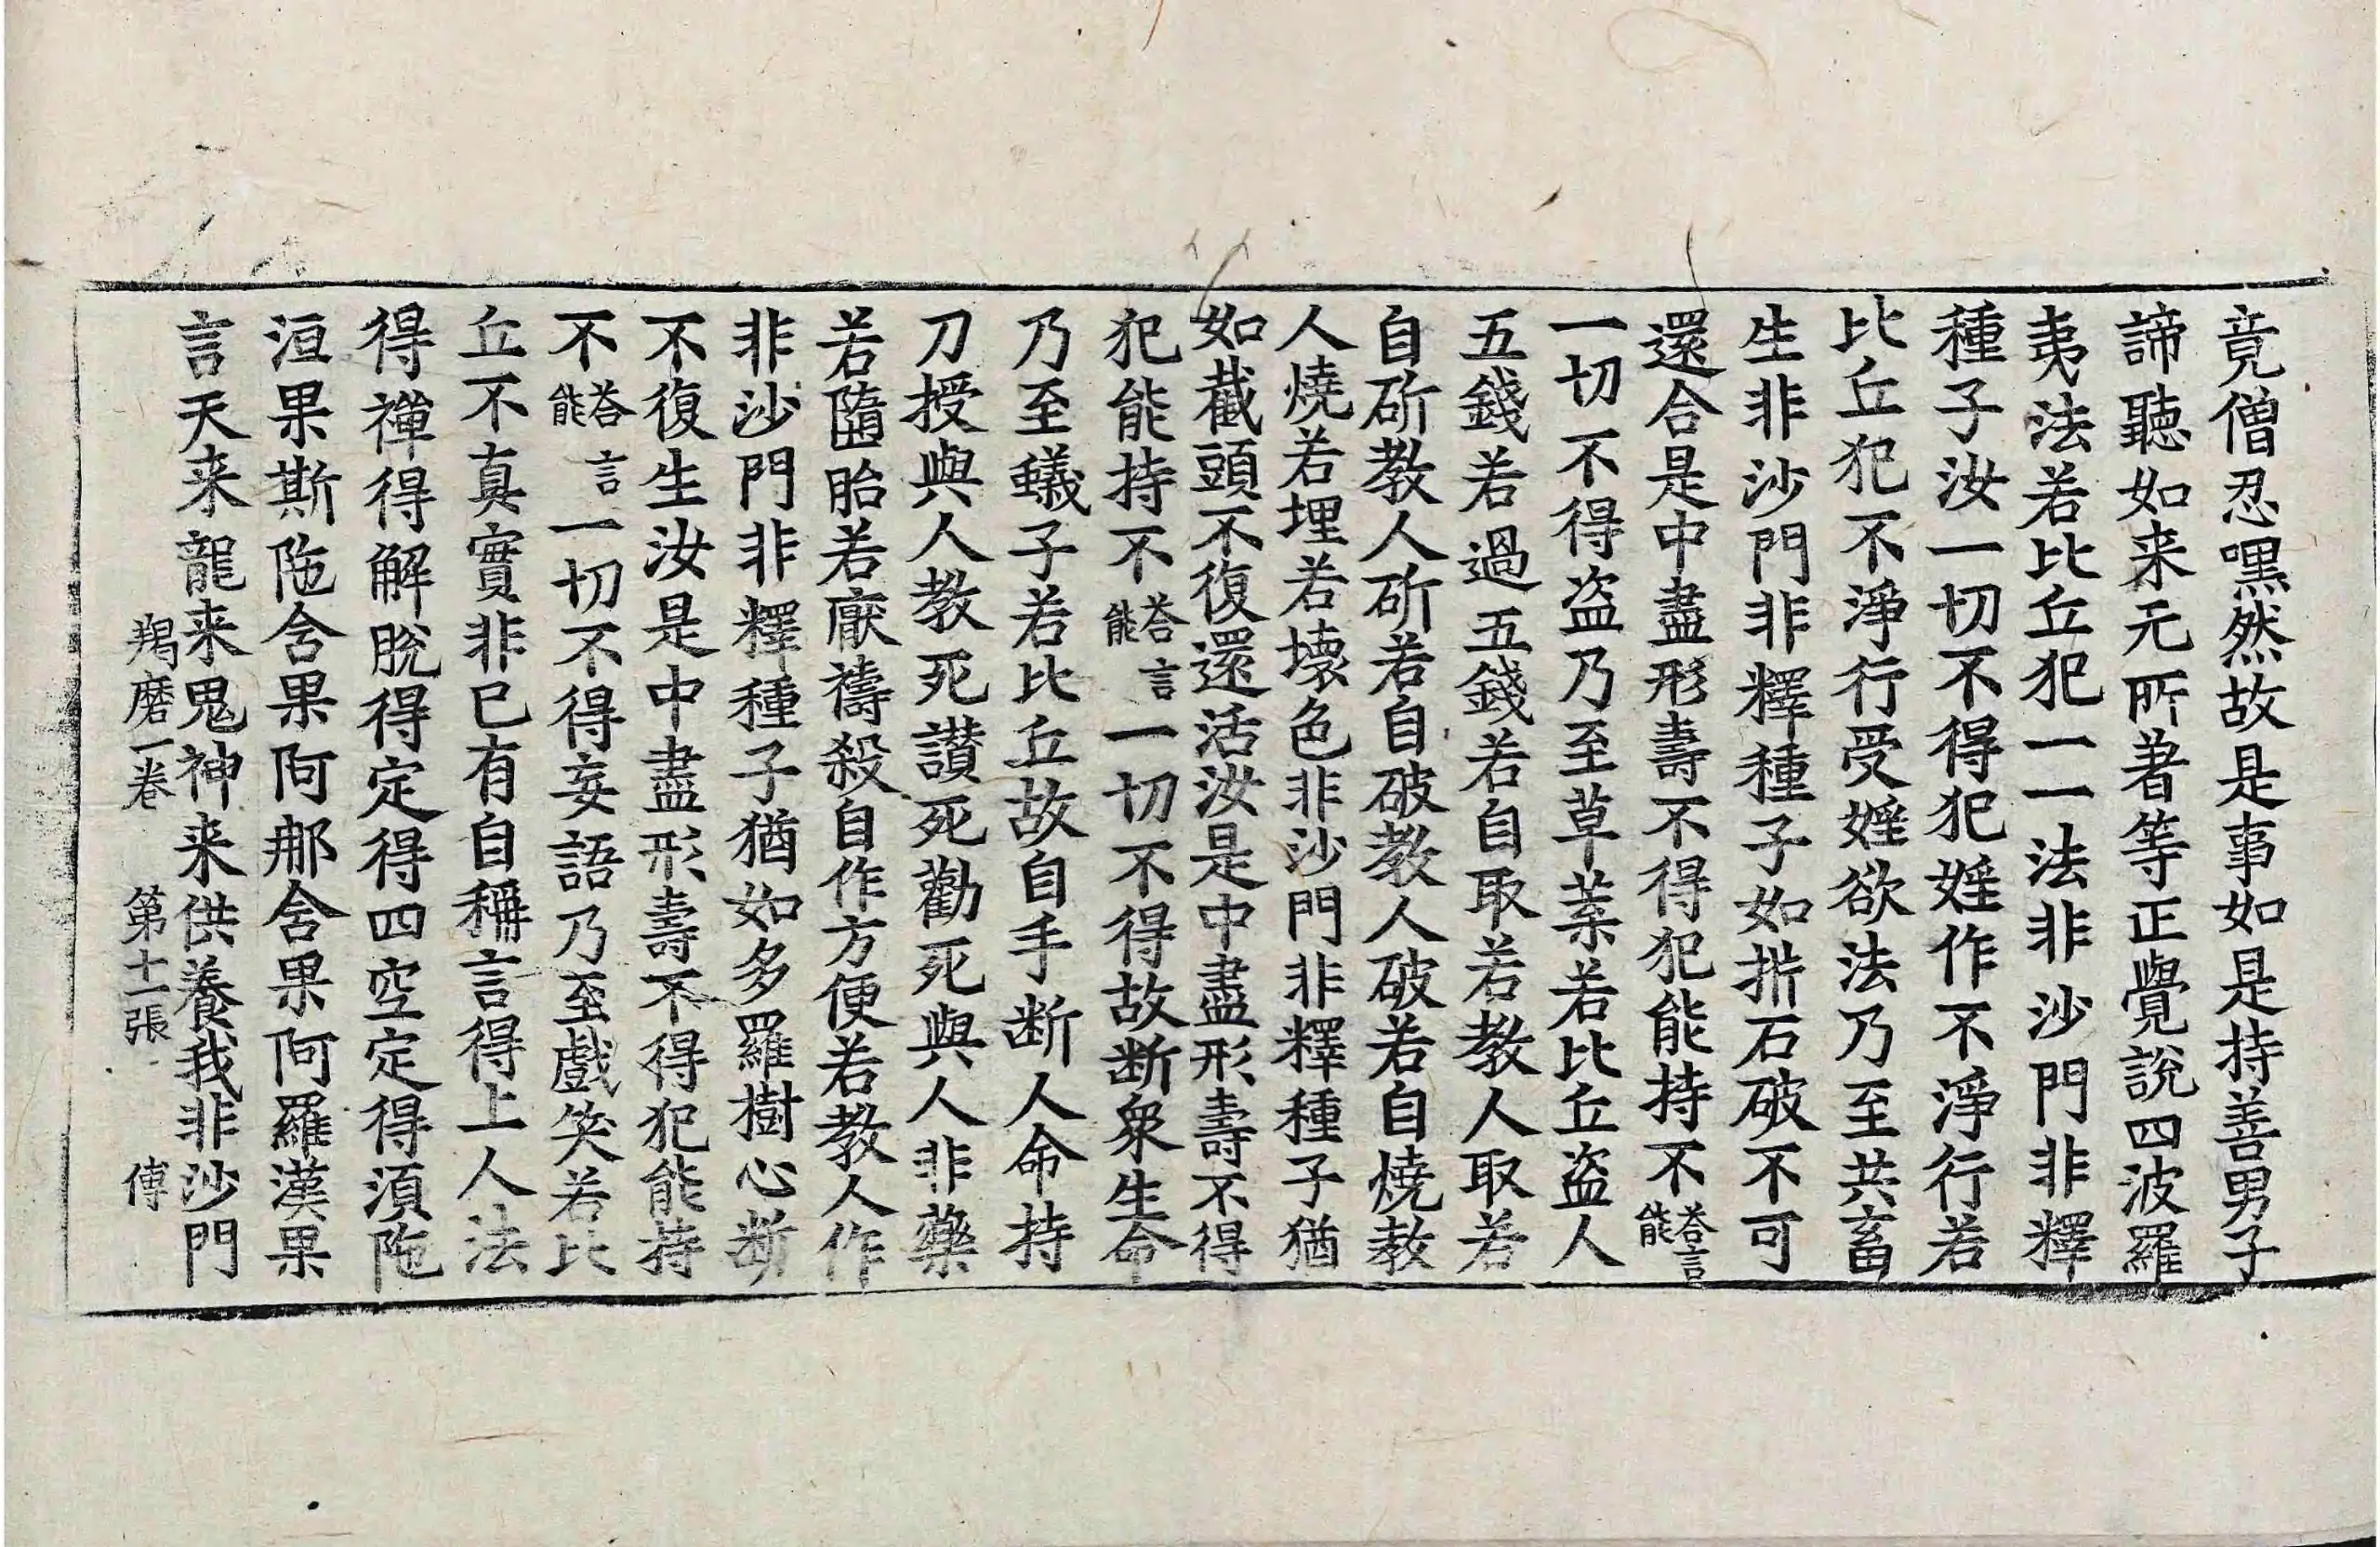 竟僧忍嘿然故是事如是持善男子
諦聽如来元所著等正覺說四波羅
夷法若比丘犯一一法非沙門非釋
種子汝一切不得犯婬作不淨行若
比丘犯不淨行受婬欲法乃至共畜
生非沙門非釋種子如㭊石破不可
還合是中盡形壽不得犯能持不荅言能
一切不得盜乃至草葉若比丘盜人
五錢若過五錢若自取若教人取若
自斫教人斫若自破教人破若自燒教
人燒若埋若壞色非沙門非釋種子猶
如截頭不復還活汝是中盡形壽不得
犯能持不荅言能一切不得故断衆生命
乃至蟻子若比丘故自手断人命持
刀授與人教死讃死勸死與人非藥
若墮胎若厭禱殺自作方便若教人作
非沙門非釋種子猶如多羅樹心断
不復生汝是中盡形壽不得犯能持
不荅言能一切不得妄語乃至戲笑若比
丘不真實非已有自稱言得上人法
得禪得解脫得定得四空定得湏陁
洹果斯陁含果阿那含果阿羅漢果
言天来龍来鬼神来供養我非沙門
羯磨一卷 第十一張 傳